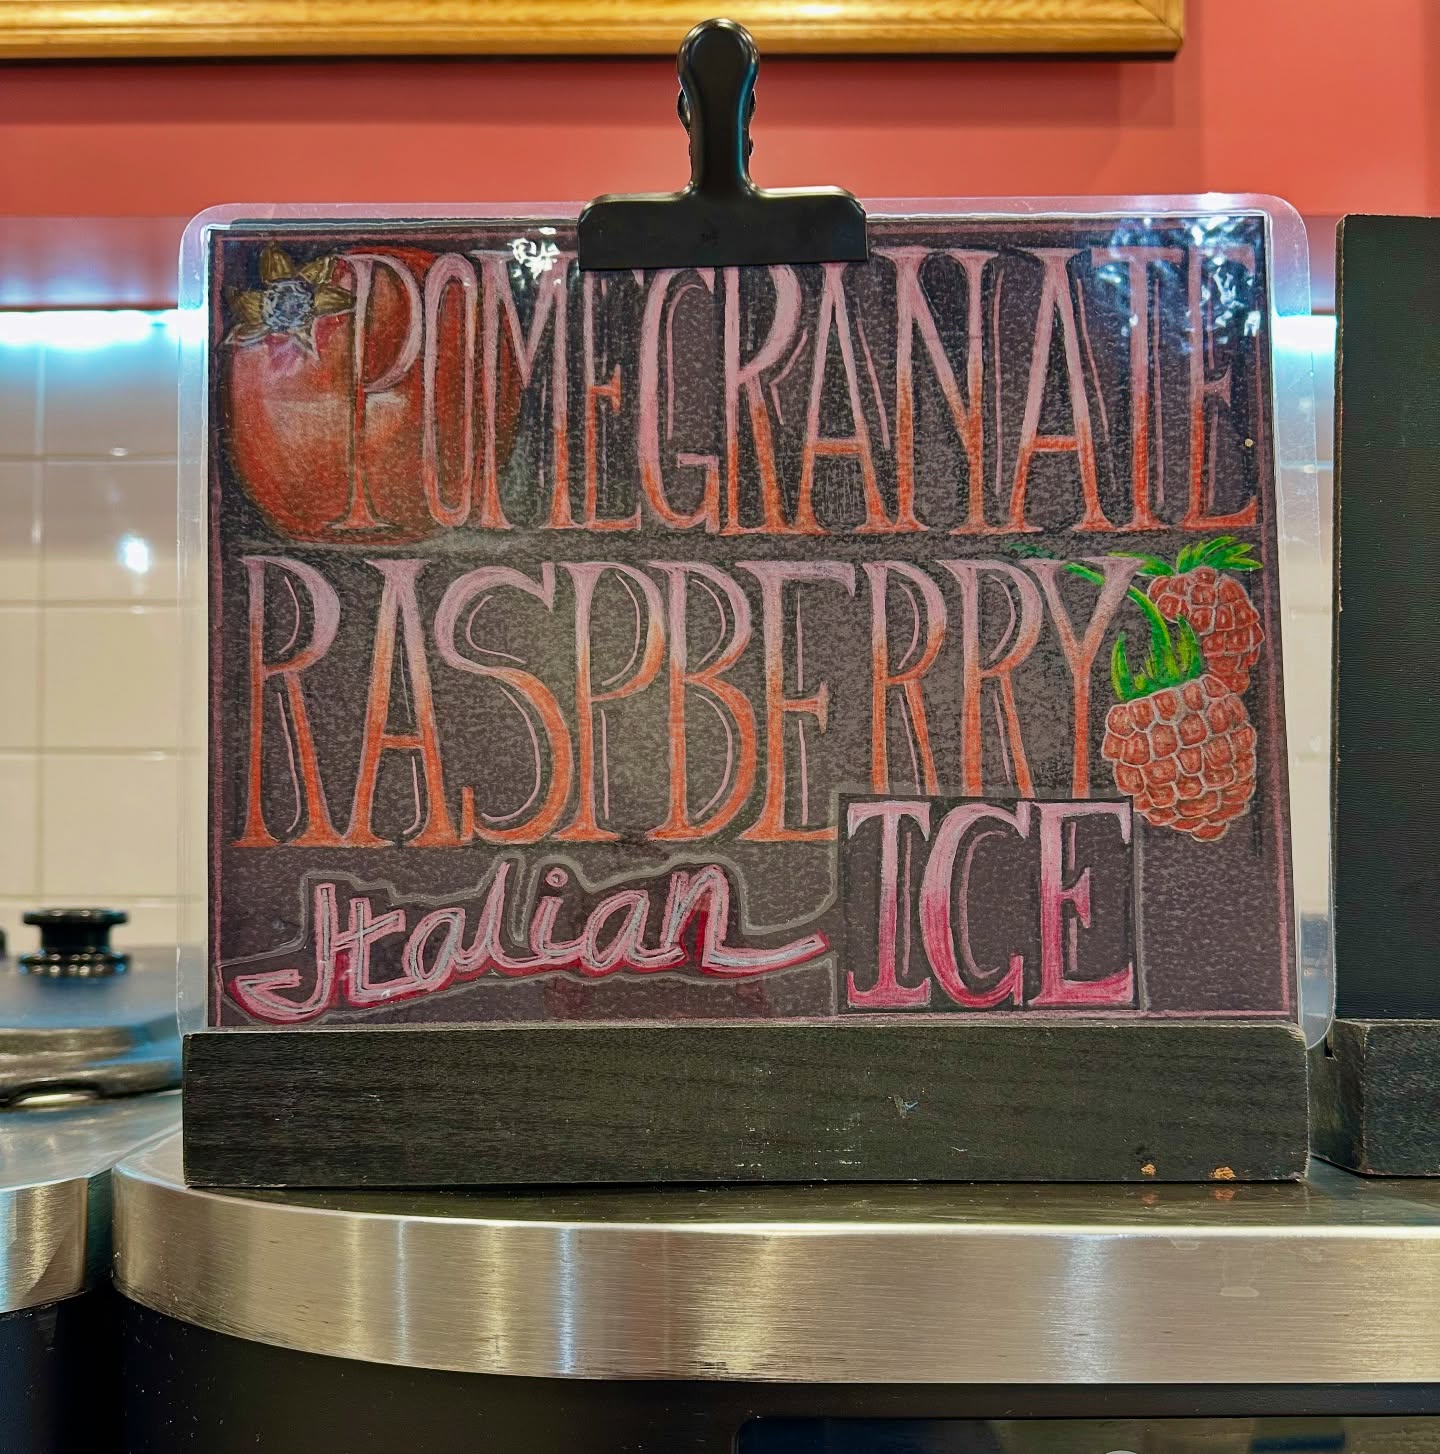 POMEGRANATE
RASPBERRY
Italian ICE